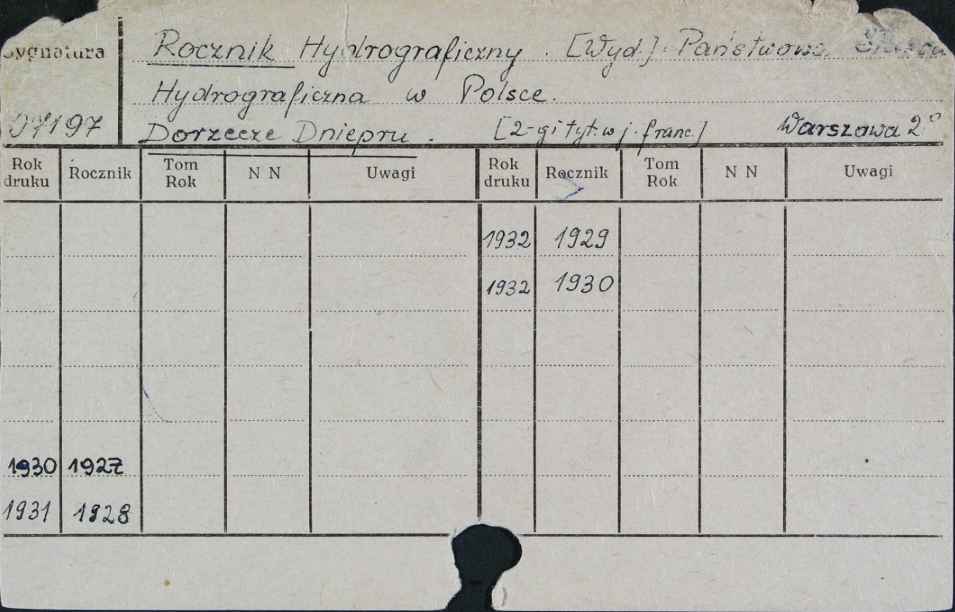 Sygnatura
Rocznik Hydrograficzny. [Wyd.] Państwowa
Hydrograficzna w Polsce.
07197 Dorzecze Dniepru. [2-gi tyt. w j. franc.] Warszawa 2°
Rok druku Rocznik Tom Rok N N Uwagi Rok druku Rocznik Tom Rok N N Uwagi
1932 1929
1932 1930
1930 1927
1931 1928